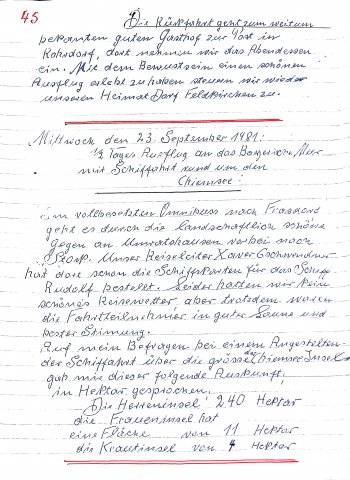 45
Die Rückfahrt geht zum weitum
bekannten guten Gasthof zur Post in
Rohrdorf, dort nehmen wir das Abendessen
ein. Mit dem Bewustsein einen schönen
Ausflug erlebt zu haben steuern wir wieder
unseren Heimat Dorf Feldkirchen zu.
Mittwoch den 23. September 1981:
1/2 Tages Ausflug an das Bayerische Meer
mit Schiffahrt rund um den
Chiemsee!
Im vollbesetzten Omnibuss nach Frasdorf
geht es durch die landschaftlich schöne
gegen an Umratshausen vorbei nach
Stock. Unser Reiseleiter Xaver Gschwendner
hat dore schon die Schiffskarten für das Schiff
Rudolf bestellt. Leider hatten wir kein
schönes Reisewetter, aber trotzdem waren
die Fahrtteilnehmer in guter Laune und
bester Stimmung.
Auf mein Befragen bei einem Angestelten
der Schiffahrt über die grösse der Chiemsee Insel
gab mir dieser folgende Auskunft,
in Hektar gesprochen.
Die Herreninsel 240 Hektar
die Fraueninsel hat
eine Fläche von 11 Hektar
die Krautinsel von 4 Hektar